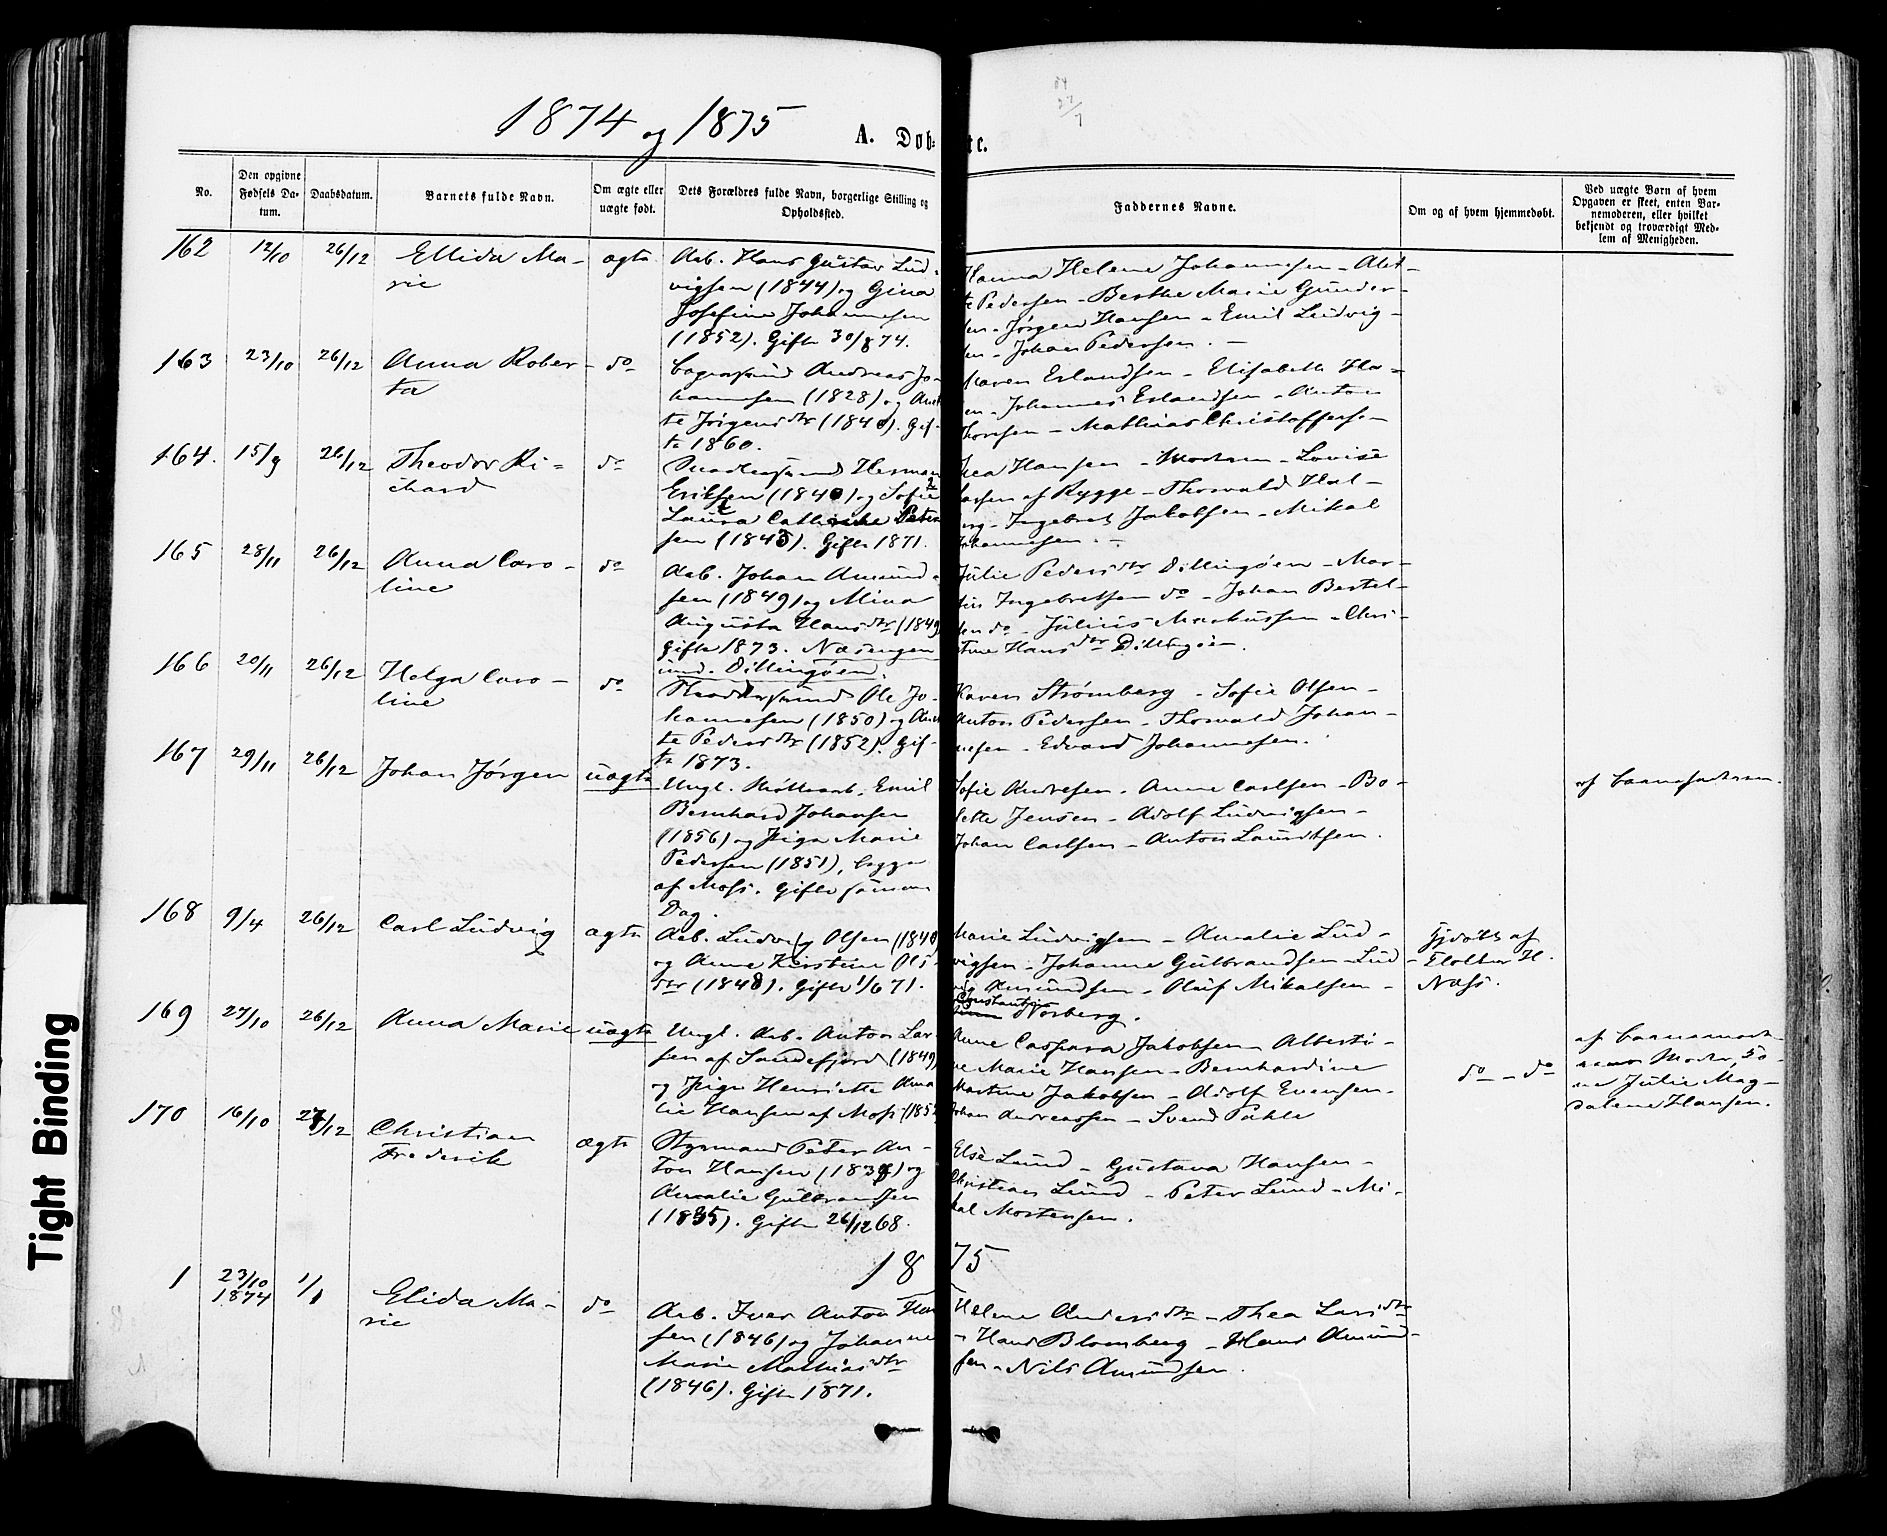 1874 og 1875
A. Døb-
te.
No.
Den opgivne Fødsels Da-
tum.
Daabsdatum.
Barnets fulde Navn.
Om ægte eller
uægte født.
Dets Forældres fulde Navn, borgerlige Stilling og
Opholdssted.
Faddernes Navne.
Om og af hvem hjemmedøbt.
Ved uægte Børn af hvem
Opgaven er skeet, enten Bar-
nemoderen, eller hvilket
bekjendt og troværdigt Med-
lem af Menigheden.
162 12/10 26/12 Ellida Ma-
rie
ægte
Arb. Hans Gustav Lud-
vigsen (1844) og Gina
Josefine Johannesen
(1852). Gifte 30/8 74.
Hanna Helene Johannesen - Alet-
te Pedersen - Berthe Marie Gunder-
sen - Jørgen Hansen - Emil Ludvig-
sen - Johan Pedersen. -
163 23/10 26/12 Anna Rober-
ta
do
Andreas Jo-
hannesen (1828) og Anet-
te Jørgensdtr (1840). Gif-
te 1860.
Karen Erlandsen - Elisabeth Ha-
sen - Johannes Erlandsen - Anton
Thoresen - Mathias Christoffersen
164. 15/9 26/12 Theodor Ri-
chard
do
Herman
Eriksen (1840) og Sofie
Laura Cathrine Peter-
sen (1843). Gifte 1871.
Thea Hansen - Modren - Lovise
Larsen af Rygge - Thorvald Hal-
berg - Ingebret Jakobsen - Mikal
Johannesen. -
165 28/11 26/12 Anna Caro-
line
do
Arb. Johan Amund-
sen (1849) og Mina
Augusta Hansdtr (1849)
Gifte 1873. Næsengen
und. Dillingøen.
Julie Pedersdtr Dillingøen - Mar-
tin Ingebretsen do - Johan Bertel-
sen do - Julius Markussen - Chri-
stine Hansdtr Dillingøen.
166 20/11 26/12 Helga Caro-
line
do
Ole Jo-
hannesen (1850) og Anet-
te Pedersdtr (1852). Gif-
te 1873.
Karen Strømberg - Sofie Olsen -
Anton Pedersen - Thorvald Johan-
nesen - Edvard Johannesen.
167 29/11 26/12 Johan Jørgen
uægte
Ungl. Emil
Bernhard Johansen
(1856) og Pige Marie
Pedersen (1851), begge
af Moss. Gifte samme
Dag.
Sofie Andresen - Anne Carlsen - Bo-
lette Jensen - Adolf Ludvigsen -
Johan Carlsen - Anton Laurdtsen.
af Barnefaderen.
168 9/4 26/12 Carl Ludvig
ægte
Arb. Ludvig Olsen (1840)
og Anne Kirstine Ols-
dtr (1848). Gifte 1/6 71.
Marie Ludvigsen - Amalie Lud-
vigsen - Johanne Gulbrandsen - Lud-
vig Amundsen - Oluf Mikalsen -
Constantin
Norberg.
Hjdøbt af
H.
Næss.
169 27/10 26/12 Anna Marie
uægte
Ungl. Arb. Anton Lar-
sen af Sandefjord (1849)
og Pige Henriette Ama-
lie Hansen af Moss (185
Anne Caspara Jakobsen - Alberti-
ne Marie Hansen - Bernhardine
Martine Jakobsen - Adolf Evensen -
Johan Andreassen - Svend Pahle
do - do
af Barnemod-
rens Moder,
Julie Mag-
dalene Hansen.
170 16/10 27/12 Christian
Frederik
ægte
Styrmand Peter An-
ton Hansen (1839) og
Amalie Gulbrandsen
(1835). Gifte 26/12 68.
Else Lund - Gustava Hansen -
Christian Lund - Peter Lund - Mi-
kal Mortensen.
1875
1 23/10
1874
1/1
Elida Ma-
rie
do
Arb. Iver Anton Han-
sen (1846) og Johanne
Marie Mathiasdtr
(1846). Gifte 1871.
Helene Andersdtr - Thea Larsdtr
- Hans Blomberg - Hans Amund-
sen - Nils Amundsen.
Tight Binding